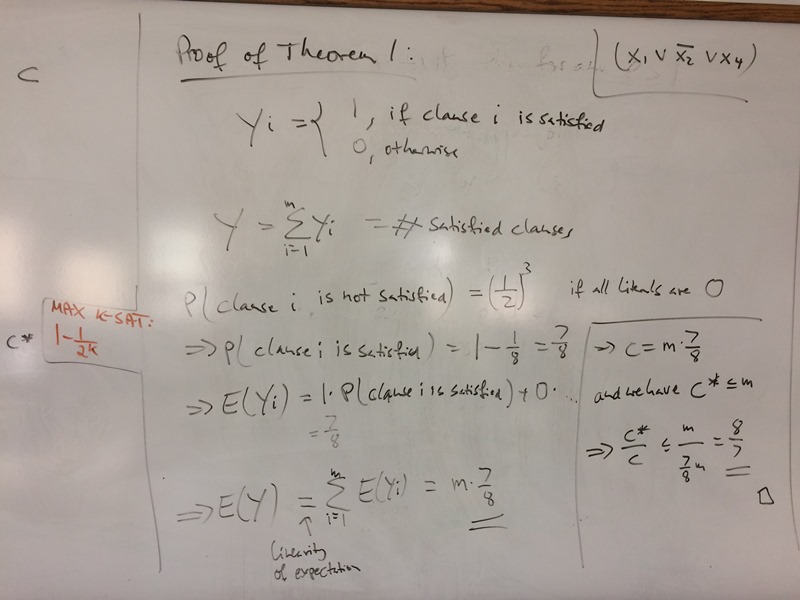 C
Proof of Theorem 1:
(x₁ ∨ x̅₂ ∨ x₄)
Yi = { 1, if clause i is satisfied
0, otherwise
Y = ∑_{i=1}^{m} Yi = # satisfied clauses
P(clause i is not satisfied) = (1/2)³ if all literals are 0
⇒ P(clause i is satisfied) = 1 - 1/8 = 7/8
⇒ E(Yi) = 1 · P(clause i is satisfied) + 0 · ...
= 7/8
⇒ E(Y) = ∑_{i=1}^{m} E(Yi) = m · 7/8
↑
linearity
of expectation
⇒ C = m · 7/8
and we have C* ≤ m
⇒ C*/C ≤ m / (7/8 m) = 8/7
□
C*
MAX K-SAT:
1 - 1/2ᵏ